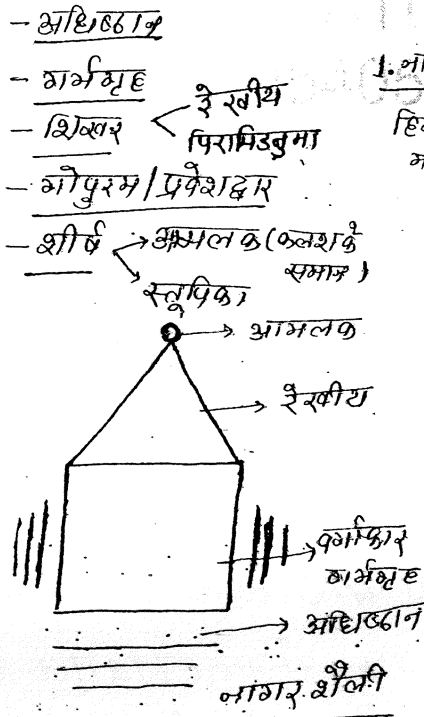 - अधिष्ठान
- गर्भगृह
- शिखर
रेखीय
पिरामिडनुमा
- गोपुरम / प्रवेशद्वार
- शीर्ष
आमलक (कलश के समान)
स्तूपिका
आमलक
रेखीय
वर्गाकार
गर्भगृह
अधिष्ठान
नागर शैली
1. ना
हि